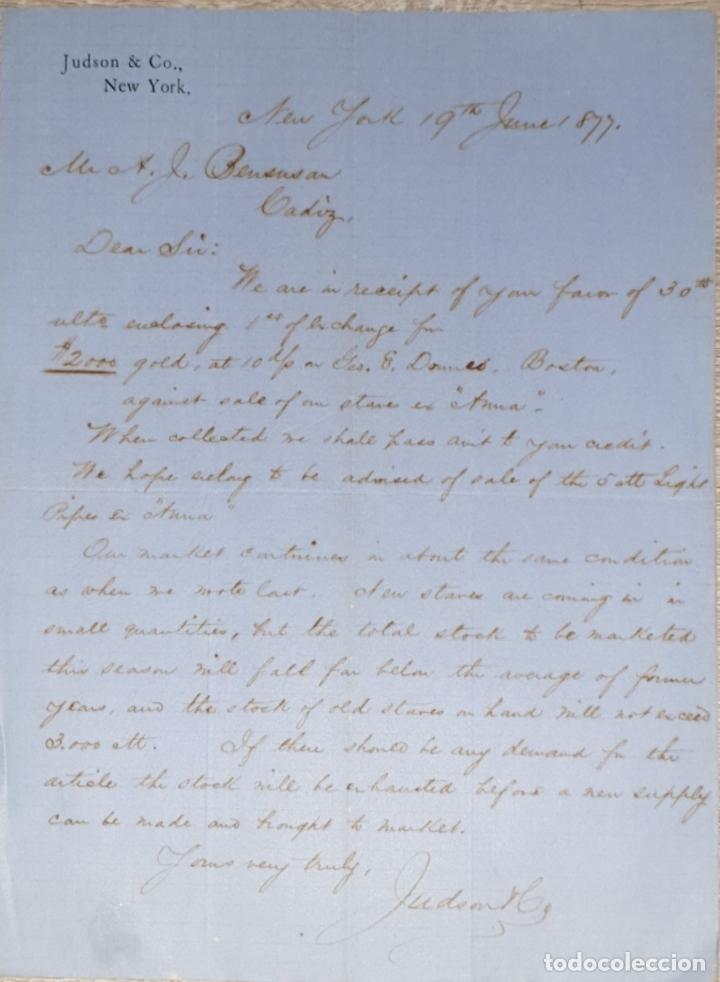 Judson & Co.,
New York.
New York 19th June 1877.
Mr A. J. Bensusan
Cadiz,
Dear Sir:
We are in receipt of your favor of 30th
ulto enclosing 1st of Exchange for
$2000 gold, at 10 d/s on Geo. E. Boston,
against sale of our staves ex "Anna".
When collected we shall pass am't to your credit.
We hope erelong to be advised of sale of the 5 Light
Pipes Ex "Anna"
Our market continues in about the same condition
as when we wrote last. New staves are coming in in
small quantities, but the total stock to be marketed
this season will fall far below the average of former
years, and the stock of old staves on hand will not exceed
3.000 If there should be any demand for the
article the stock will be exhausted before a new supply
can be made and brought to market.
Yours very truly,
Judson & Co
todocoleccion
todocoleccion.net